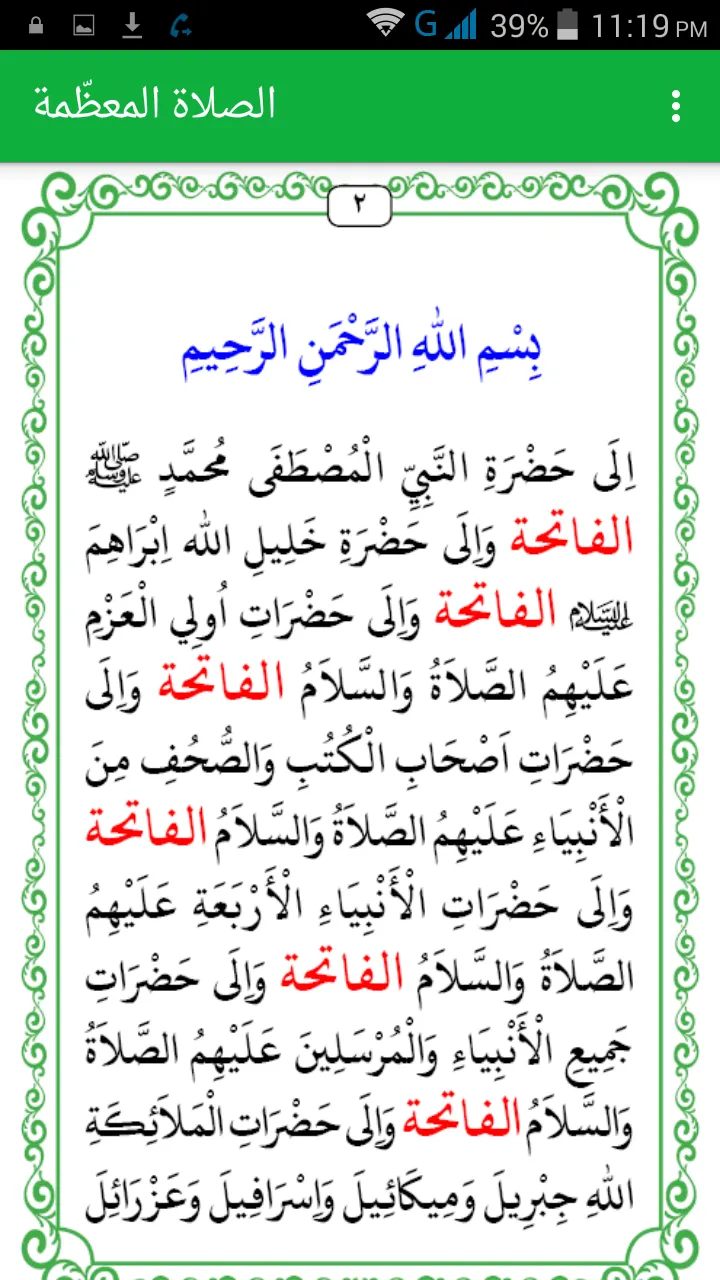 39% 11:19 PM
الصلاة المعظّمة
٢
بِسْمِ اللهِ الرَّحْمَنِ الرَّحِيمِ
اِلَى حَضْرَةِ النَّبِيِّ الْمُصْطَفَى مُحَمَّدٍ ﷺ
الفاتحة وَاِلَى حَضْرَةِ خَلِيلِ الله اِبْرَاهِمَ
عليه السلام الفاتحة وَاِلَى حَضْرَاتِ اُولِي الْعَزْمِ
عَلَيْهِمُ الصَّلاَةُ وَالسَّلاَمُ الفاتحة وَاِلَى
حَضْرَاتِ اَصْحَابِ الْكُتُبِ وَالصُّحُفِ مِنَ
الْأَنْبِيَاءِ عَلَيْهِمُ الصَّلاَةُ وَالسَّلاَمُ الفاتحة
وَاِلَى حَضْرَاتِ الْأَنْبِيَاءِ الْأَرْبَعَةِ عَلَيْهِمُ
الصَّلاَةُ وَالسَّلاَمُ الفاتحة وَاِلَى حَضْرَاتِ
جَمِيعِ الْأَنْبِيَاءِ وَالْمُرْسَلِينَ عَلَيْهِمُ الصَّلاَةُ
وَالسَّلاَمُ الفاتحة وَاِلَى حَضْرَاتِ الْمَلاَئِكَةِ
اللهِ جِبْرِيلَ وَمِيكَائِيلَ وَاِسْرَافِيلَ وَعَزْرَائِلَ